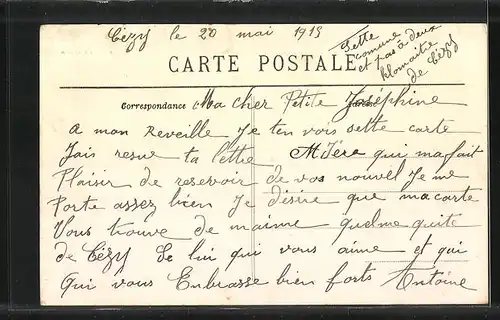 Cézy le 20 mai 1915
Sette
comune
et pas à deux
klomaitre
de Cézy
CARTE POSTALE
Correspondance Ma cher Petite Joséphine
a mon Reveille Je ten vois sette carte
Jais resue ta lettre qui ma fait
Plaisir de reservoir de vos nouvel Je me
Porte assez bien Je désire que ma carte
Vous trouve de maime quelme quite
de Cézy De lui qui vous aime et qui
qui vous Enbrasse bien forts Antoine